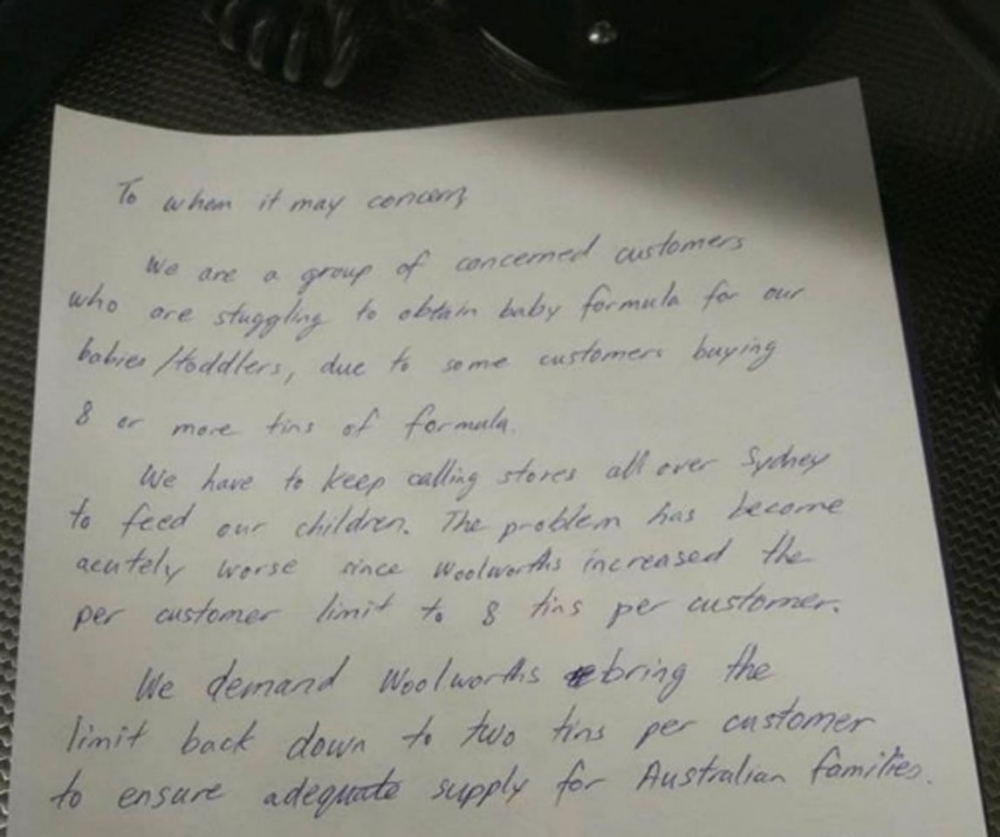 To whom it may concern,
We are a group of concerned customers
who are stuggling to obtain baby formula for our
babies/toddlers, due to some customers buying
8 or more tins of formula.
We have to keep calling stores all over Sydney
to feed our children. The problem has become
acutely worse since Woolworths increased the
per customer limit to 8 tins per customer.
We demand Woolworths bring the
limit back down to two tins per customer
to ensure adequate supply for Australian families.